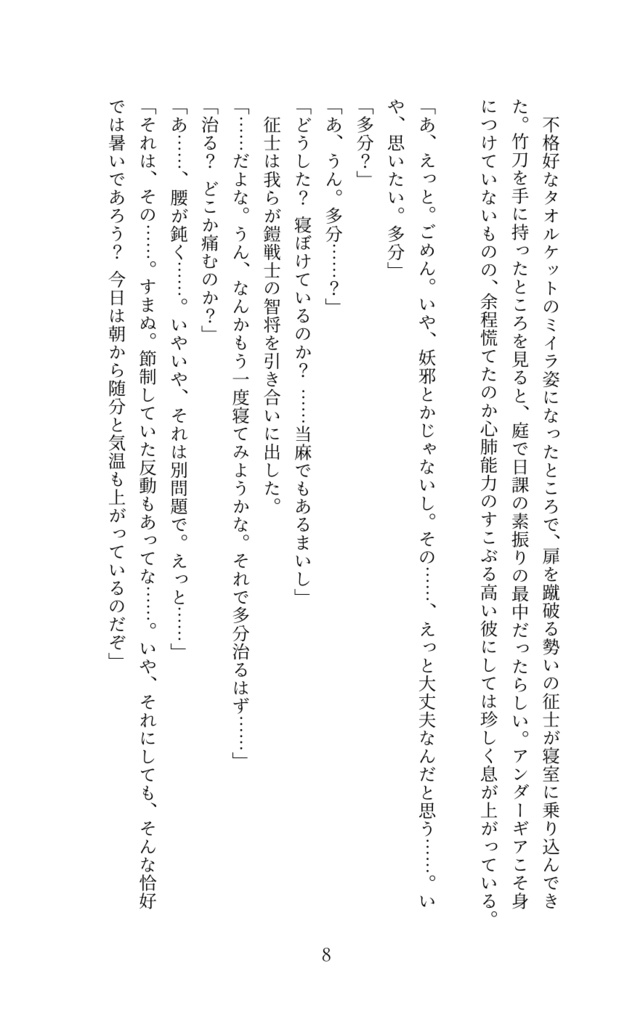 不格好なタオルケットのミイラ姿になったところで、扉を蹴破る勢いの征士が寝室に乗り込んでき
た。竹刀を手に持ったところを見ると、庭で日課の素振りの最中だったらしい。アンダーギアこそ身
につけていないものの、余程慌てたのか心肺能力のすこぶる高い彼にしては珍しく息が上がっている。
「あ、えっと。ごめん。いや、妖邪とかじゃないし。その……、えっと大丈夫なんだと思う……。い
や、思いたい。多分」
「多分？」
「あ、うん。多分……？」
「どうした？ 寝ぼけているのか？ ……当麻でもあるまいし」
征士は我らが鎧戦士の智将を引き合いに出した。
「……だよな。うん、なんかもう一度寝てみようかな。それで多分治るはず……」
「治る？ どこか痛むのか？」
「あ……、腰が鈍く……。いやいや、それは別問題で。えっと……」
「それは、その……。すまぬ。節制していた反動もあってな……。いや、それにしても、そんな恰好
では暑いであろう？ 今日は朝から随分と気温も上がっているのだぞ」
8